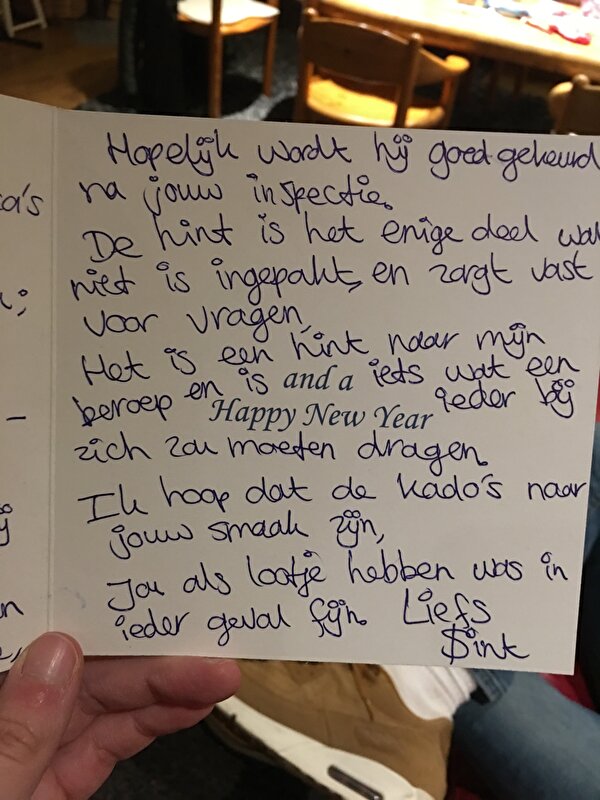 Hopelijk wordt hij goed gekeurd
na jouw inspectie.
De hint is het enige deel wat
niet is ingepakt, en zorgt vast
voor vragen,
Het is een hint naar mijn
beroep en is and a iets wat een
Happy New Year ieder bij
zich zou moeten dragen.
Ik hoop dat de kado's naar
jouw smaak zijn,
Jou als lootje hebben was in
ieder geval fijn. Liefs
Sint